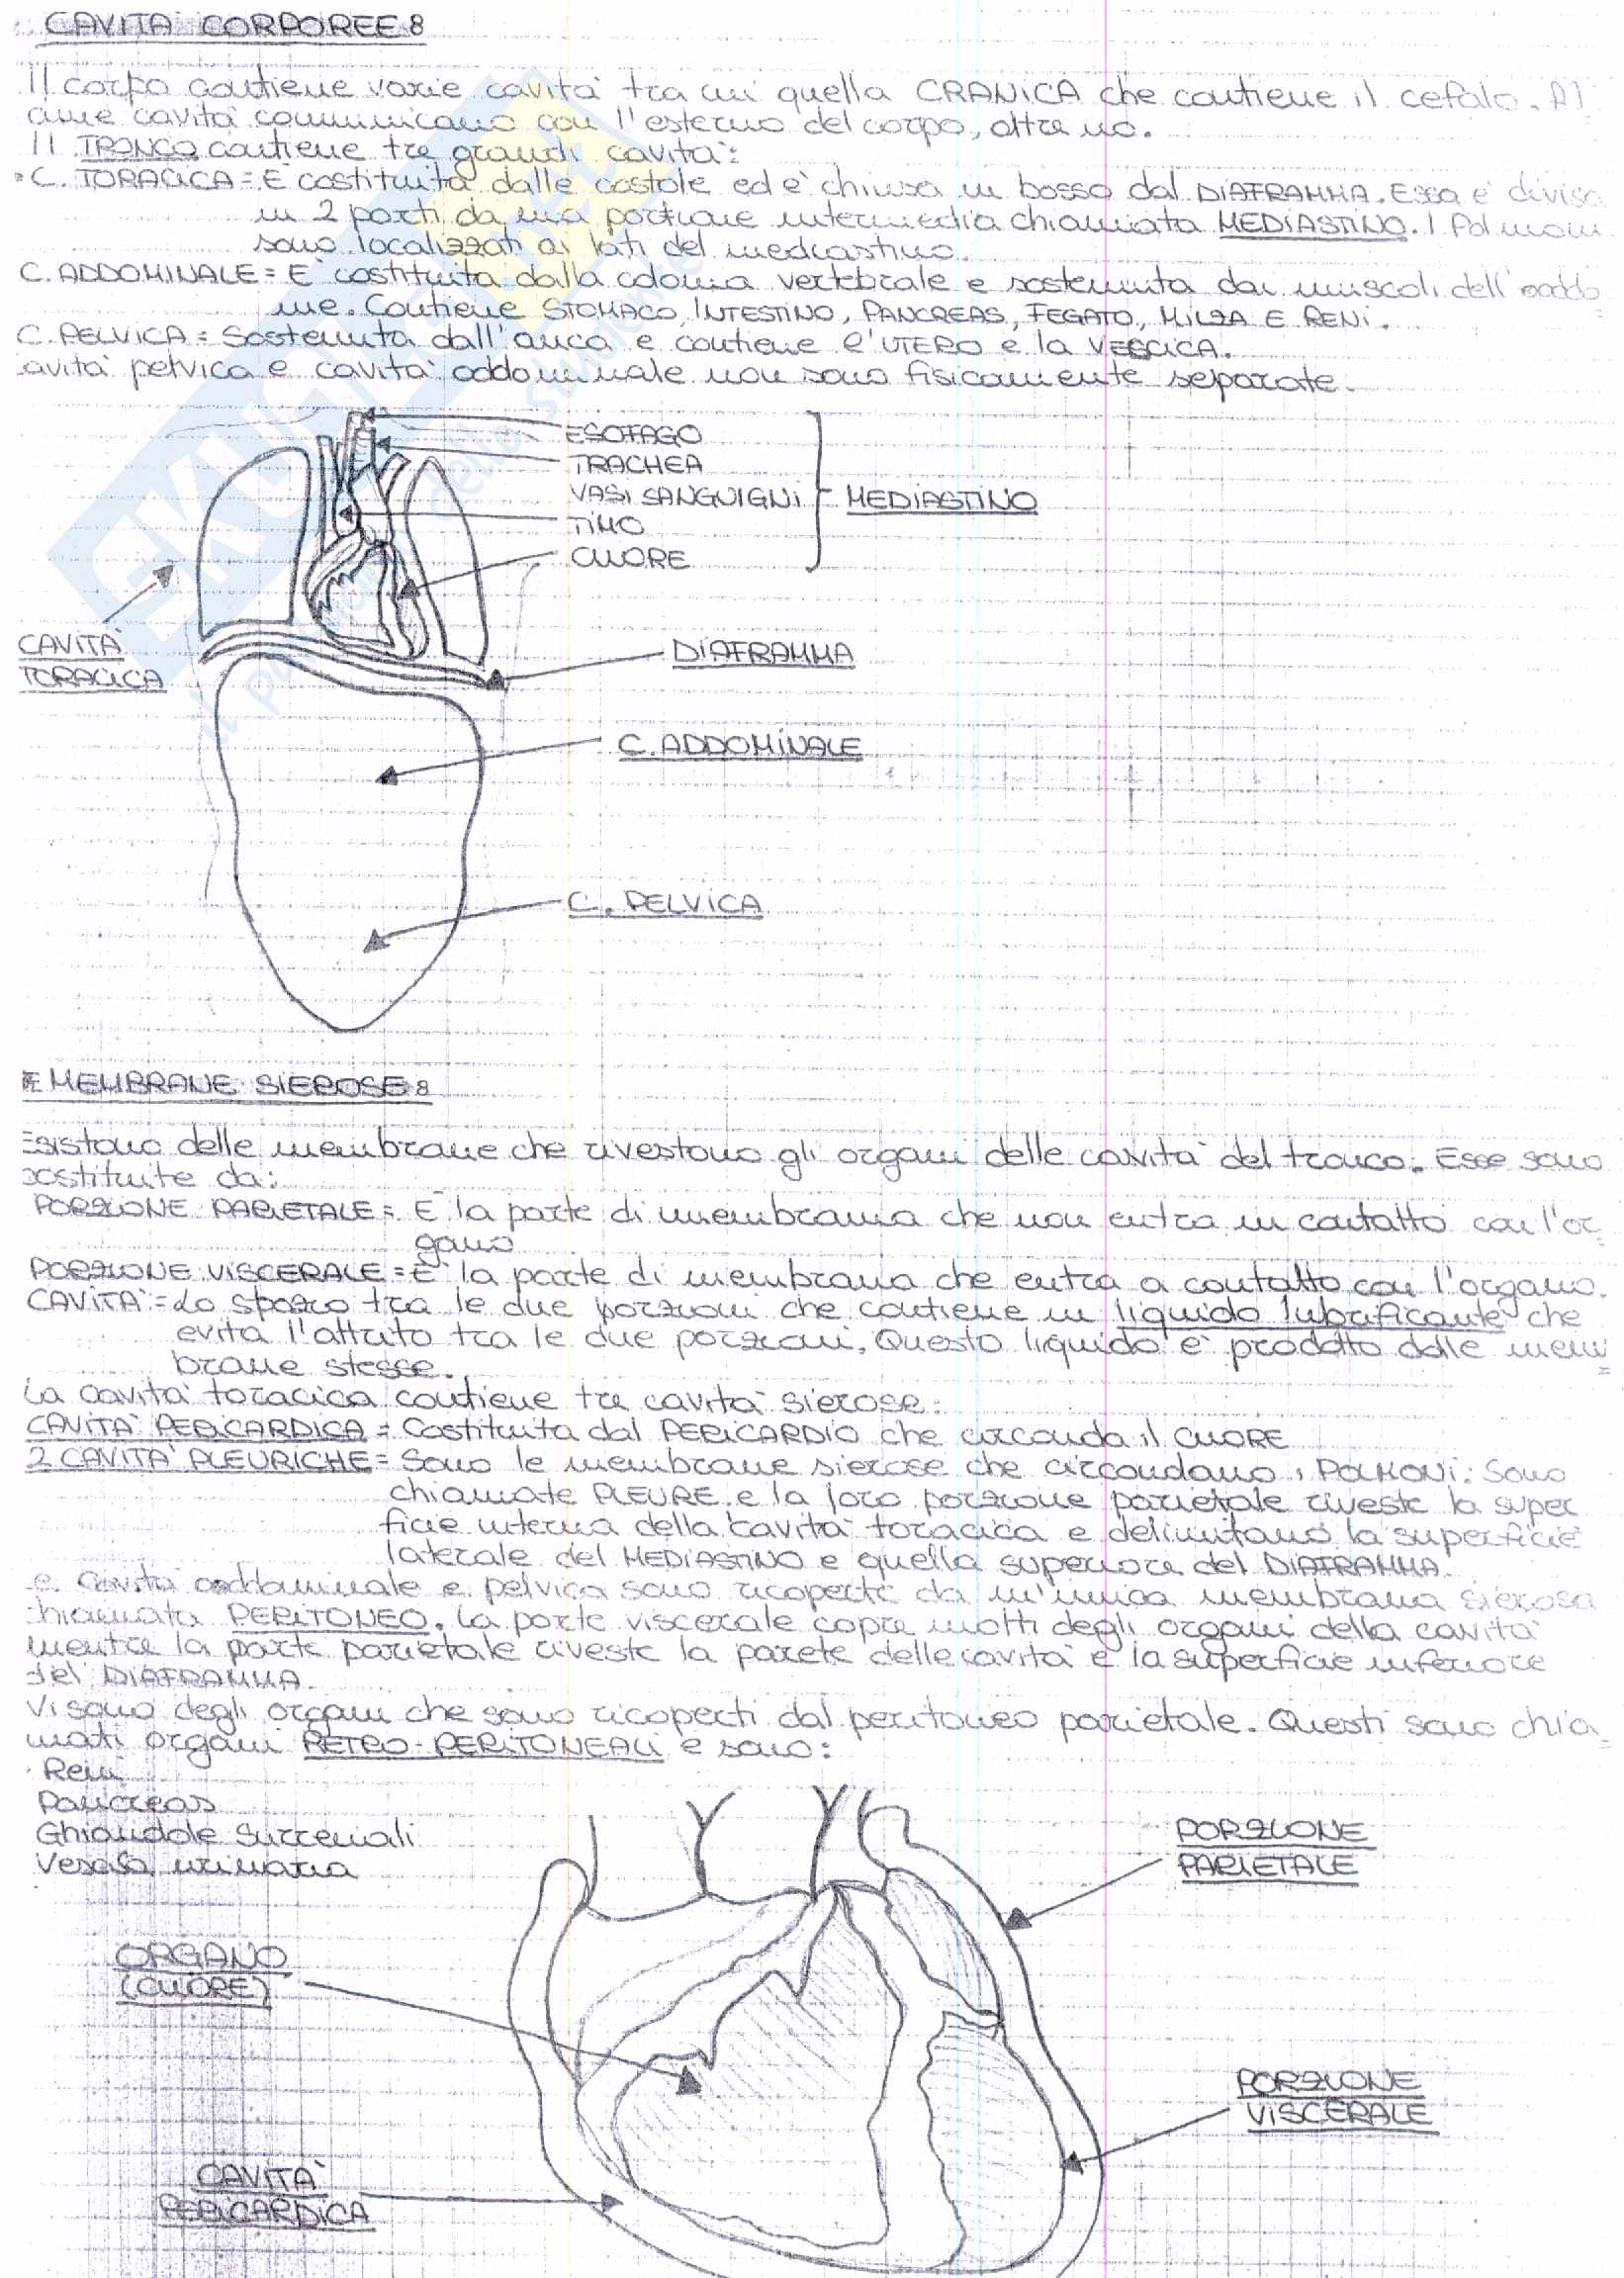 CAVITA' CORPOREE:
Il corpo contiene varie cavità tra cui quella CRANICA che contiene il cefalo. Al
cune cavità comunicano con l'esterno del corpo, altre no.
Il TRONCO contiene tre grandi cavità:
• C. TORACICA = E' costituita dalle costole ed è chiusa in basso dal DIAFRAMMA. Essa è divisa
in 2 parti da una porzione intermedia chiamata MEDIASTINO. I Polmoni
sono localizzati ai lati del mediastino.
C. ADDOMINALE = E' costituita dalla colonna vertebrale e sostenuta dai muscoli dell'addo
me. Contiene STOMACO, INTESTINO, PANCREAS, FEGATO, MILZA E RENI.
C. PELVICA = Sostenuta dall'anca e contiene l'UTERO e la VESCICA.
avità pelvica e cavità addominale non sono fisicamente separate.
ESOFAGO
TRACHEA
VASI SANGUIGNI
MEDIASTINO
TIMO
CUORE
CAVITÀ
TORACICA
DIAFRAMMA
C. ADDOMINALE
C. PELVICA
E MEMBRANE SIEROSE:
Esistono delle membrane che rivestono gli organi delle cavità del tronco. Esse sono
costituite da:
PORZIONE PARIETALE = E' la parte di membrana che non entra in contatto con l'or
gano
PORZIONE VISCERALE = E' la parte di membrana che entra a contatto con l'organo.
CAVITÀ = Lo spazio tra le due porzioni che contiene un liquido lubrificante che
evita l'attrito tra le due porzioni. Questo liquido è prodotto dalle mem
brane stesse.
La cavità toracica contiene tre cavità sierose:
CAVITÀ PERICARDICA = Costituita dal PERICARDIO che circonda il CUORE
2 CAVITÀ PLEURICHE = Sono le membrane sierose che circondano i POLMONI. Sono
chiamate PLEURE e la loro porzione parietale riveste la super
ficie interna della cavità toracica e delimitano la superficie
laterale del MEDIASTINO e quella superiore del DIAFRAMMA.
e cavità addominale e pelvica sono ricoperte da un'unica membrana sierosa
chiamata PERITONEO. La parte viscerale copre molti degli organi della cavità
mentre la parte parietale riveste la parete delle cavità e la superficie inferiore
del DIAFRAMMA.
Vi sono degli organi che sono ricoperti dal peritoneo parietale. Questi sono chia
mati organi RETRO-PERITONEALI e sono:
Reni
Pancreas
Ghiandole surrenali
Vescica urinaria
PORZIONE
PARIETALE
ORGANO
(CUORE)
PORZIONE
VISCERALE
CAVITÀ
PERICARDICA